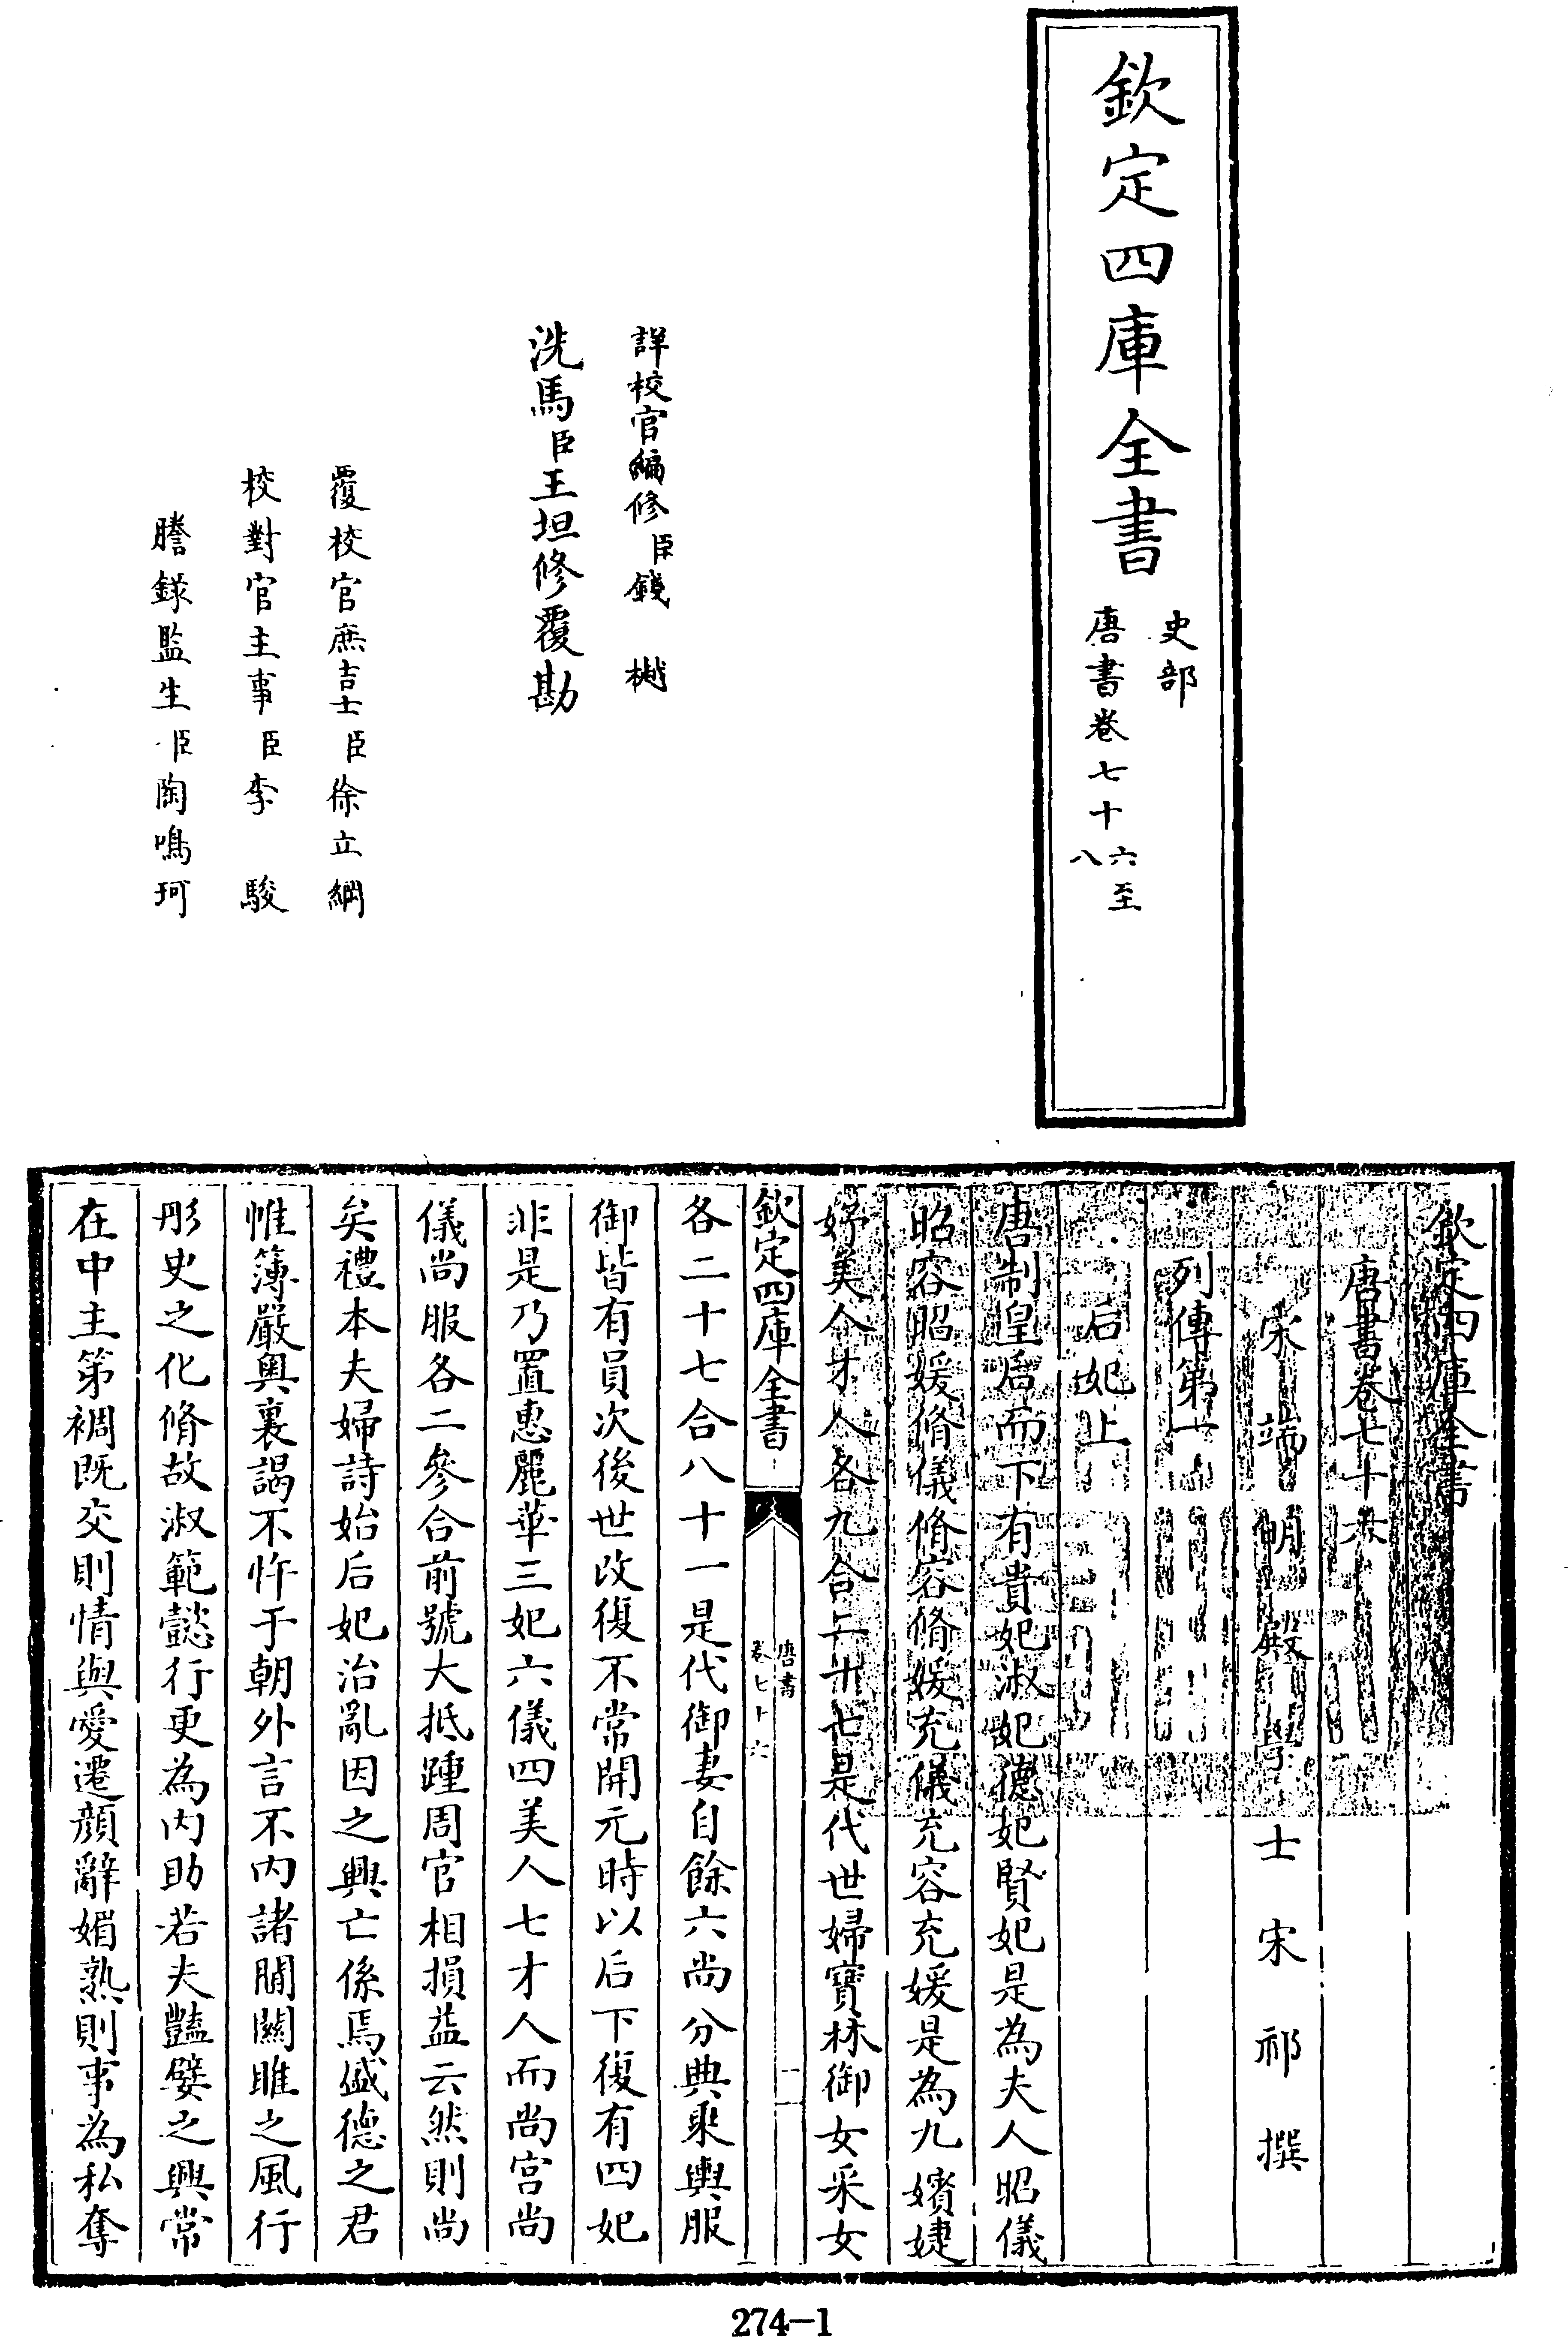 欽定四庫全書
史部
唐書卷七十六至八
詳校官編修臣錢樾
洗馬臣王坦修覆勘
覆校官庶吉士臣徐立綱
校對官主事臣李駿
謄錄監生臣陶鳴珂
欽定四庫全書
唐書卷七十六
宋端明殿學士宋祁撰
列傳第一
后妃上
唐制皇后而下有貴妃淑妃德妃賢妃是為夫人昭儀
昭容昭媛脩儀脩容脩媛充儀充容充媛是為九嬪婕
妤美人才人各九合二十七是代世婦寶林御女采女
欽定四庫全書
唐書
卷七十六
一
各二十七合八十一是代御妻自餘六尚分典乘輿服
御皆有員次後世改復不常開元時以后下復有四妃
非是乃置惠麗華三妃六儀四美人七才人而尚宮尚
儀尚服各二參合前號大抵踵周官相損益云然則尚
矣禮本夫婦詩始后妃治亂因之興亡係焉盛德之君
帷簿嚴奧裏謁不忤于朝外言不內諸閫關雎之風行
彤史之化脩故淑範懿行更為內助若夫豔嬖之興常
在中主第裯既交則情與愛遷顏辭媚熟則事為私奪
274-1